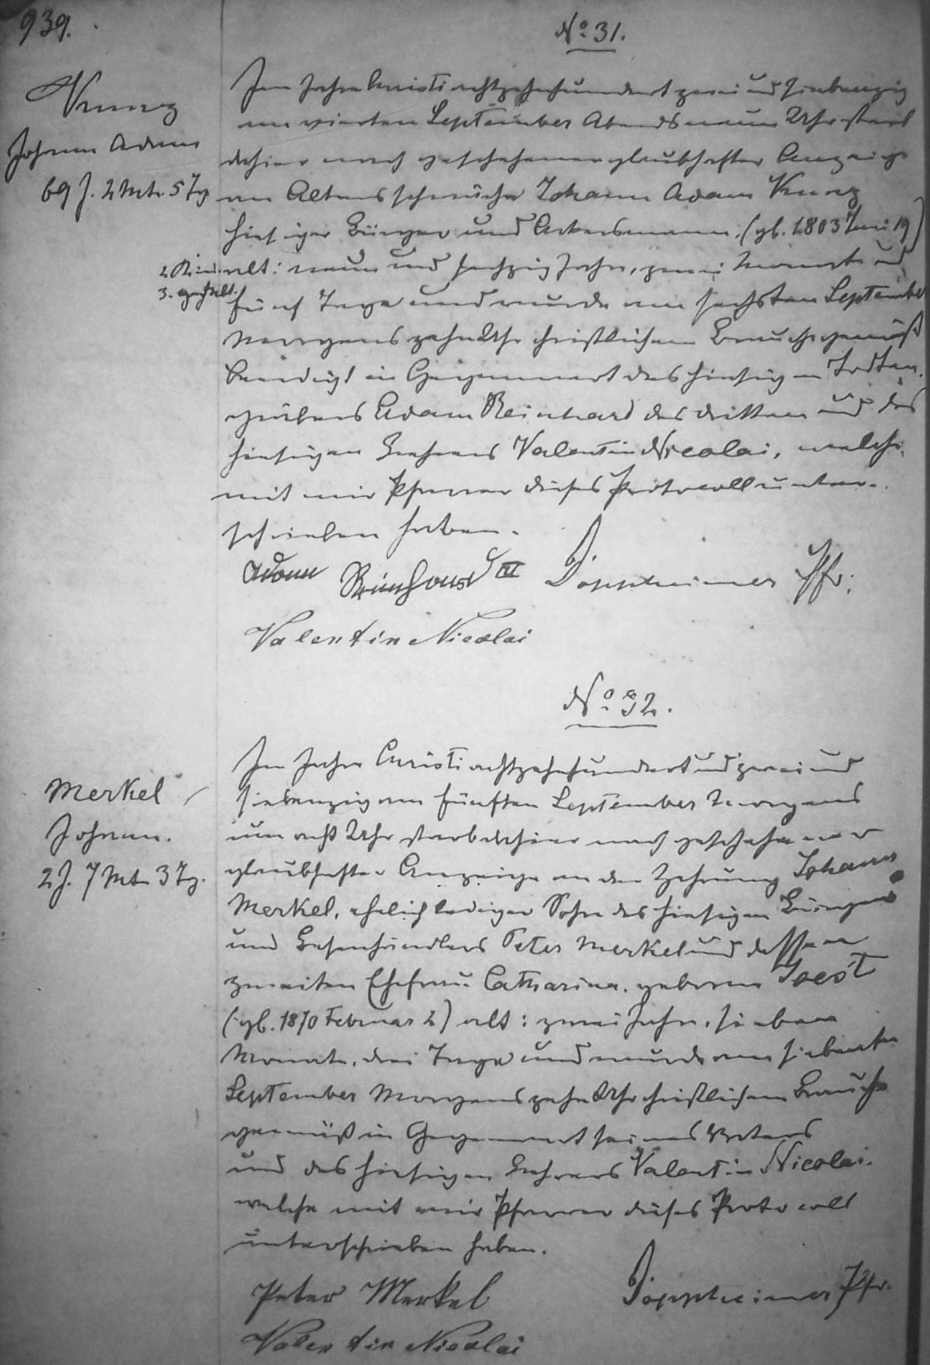 939.
No. 31.
Kunz
Johann Adam
69 J. 2 Mte 5 Tg
Im Jahre Christi achtzehnhundert zwei und siebenzig
am vierten September Abends neun Uhr starb
dahier nach geschehener glaubhafter Anzeige
an Altersschwäche Johann Adam Kunz
hiesiger Bürger und Ackersmann. (gb. 1803 Juni 19)
2. Kind
3. gezählt
alt: neun und sechzig Jahre, zwei Monate und
fünf Tage und wurde am sechsten September
Morgens zehn Uhr christlichem Brauch gemäß
beerdigt in Gegenwart des hiesigen Todten-
gräbers Adam Reinhard des dritten und des
hiesigen Lehrers Valentin Nicolai, welche
mit mir Pfarrer dieses Protocoll unter-
schrieben haben.
Adam Reinhard III
Pfr.
Valentin Nicolai
No. 32.
Merkel
Johann.
2 J. 7 Mte 3 Tg.
Im Jahre Christi achtzehnhundert und zwei und
siebenzig am fünften September Morgens
um acht Uhr starb dahier nach geschehener
glaubhafter Anzeige an der Zehrung Johann
Merkel, ehelich lediger Sohn des hiesigen Bürgers
und Peter Merkel und dessen
zweiten Ehefrau Catharina, geborene Joest
(gb. 1870 Februar 2) alt: zwei Jahre, sieben
Monate, drei Tage und wurde am siebenten
September Morgens zehn Uhr christlichem Brauche
gemäß in Gegenwart seines Vaters
und des hiesigen Lehrers Valentin Nicolai.
welche mit mir Pfarrer dieses Protocoll
unterschrieben haben.
Peter Merkel
Pfr.
Valentin Nicolai